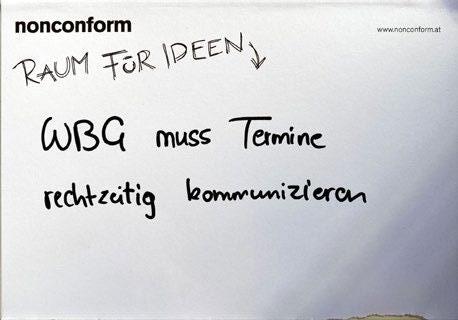 nonconform
www.nonconform.at
RAUM FÜR IDEEN
WBG muss Termine
rechtzeitig kommunizieren